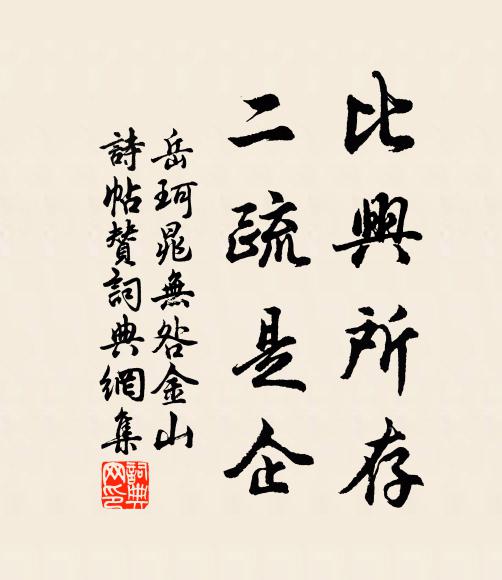 比興所存
二疏是企
岳珂晁無咎金山
詩帖贊詞典網集
詞典
网印